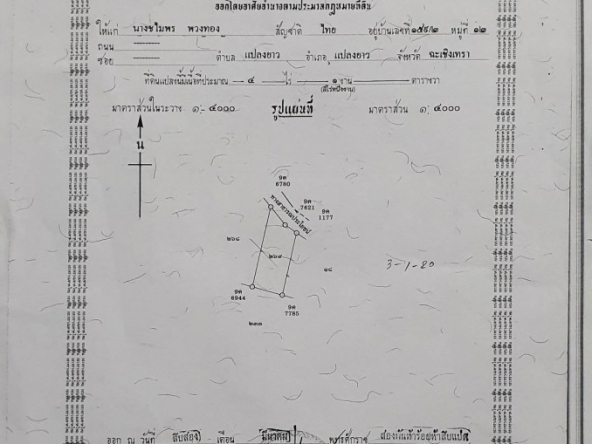 ออกโดยอาศัยอำนาจตามประมวลกฎหมายที่ดิน
ให้แก่ นางชไมพร พวงทอง สัญชาติ ไทย อยู่บ้านเลขที่ หมู่ที่ ๑๒
ถนน
ซอย ตำบล แปลงยาว อำเภอ แปลงยาว จังหวัด ฉะเชิงเทรา
ที่ดินแปลงนี้มีเนื้อที่ประมาณ ๔ ไร่ ๑ งาน ตารางวา
(สี่ไร่หนึ่งงาน)
มาตราส่วนในระวาง ๑:๔๐๐๐ รูปแผนที่ มาตราส่วน ๑:๔๐๐๐
น
6780
7621
1177
ทางสาธารณประโยชน์
๒๖๘
๒๖๗
๑๘
3-1-20
6944
7785
๒๓๓
ออก ณ วันที่ สิบสอง เดือน มีนาคม พุทธศักราช สองพันห้าร้อยห้าสิบแปด